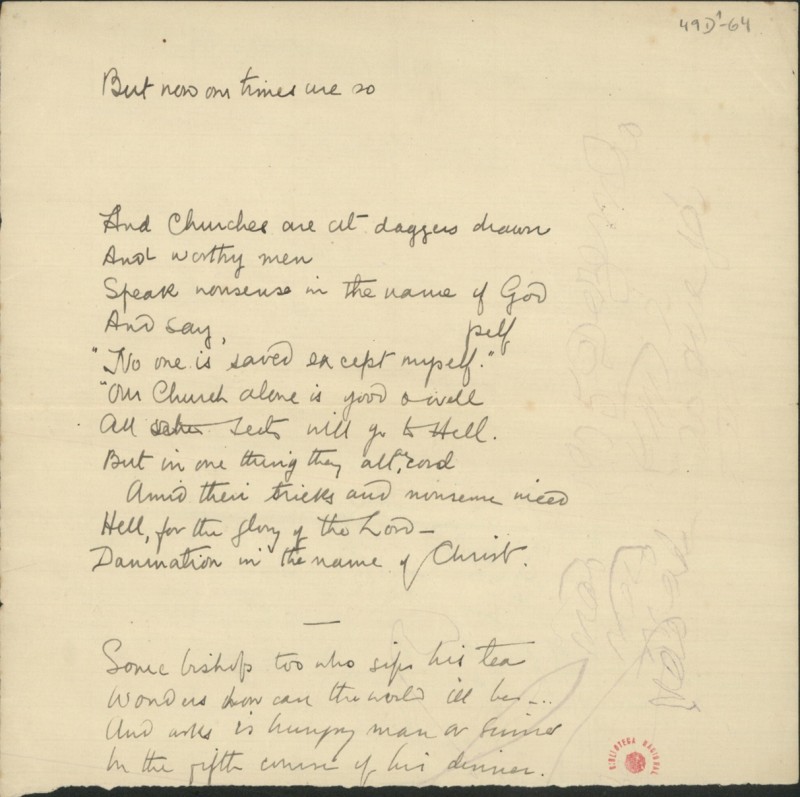 49D¹-64
But now our times are so
And Churches are at daggers drawn
And worthy men
Speak nonsense in the name of God
And say, pelf
"No one is saved except myself."
"Our Church alone is good & well
All sects will go to Hell.
But in one thing they all cord
Amid their tricks and nonsense
Hell, for the glory of the Lord –
Damnation in the name of Christ.
Some bishop too who sips his tea
Wonders how can the world ill be -...
And asks is hungry man or sinner
In the fifth course of his dinner.
BIBLIOTECA NACIONAL